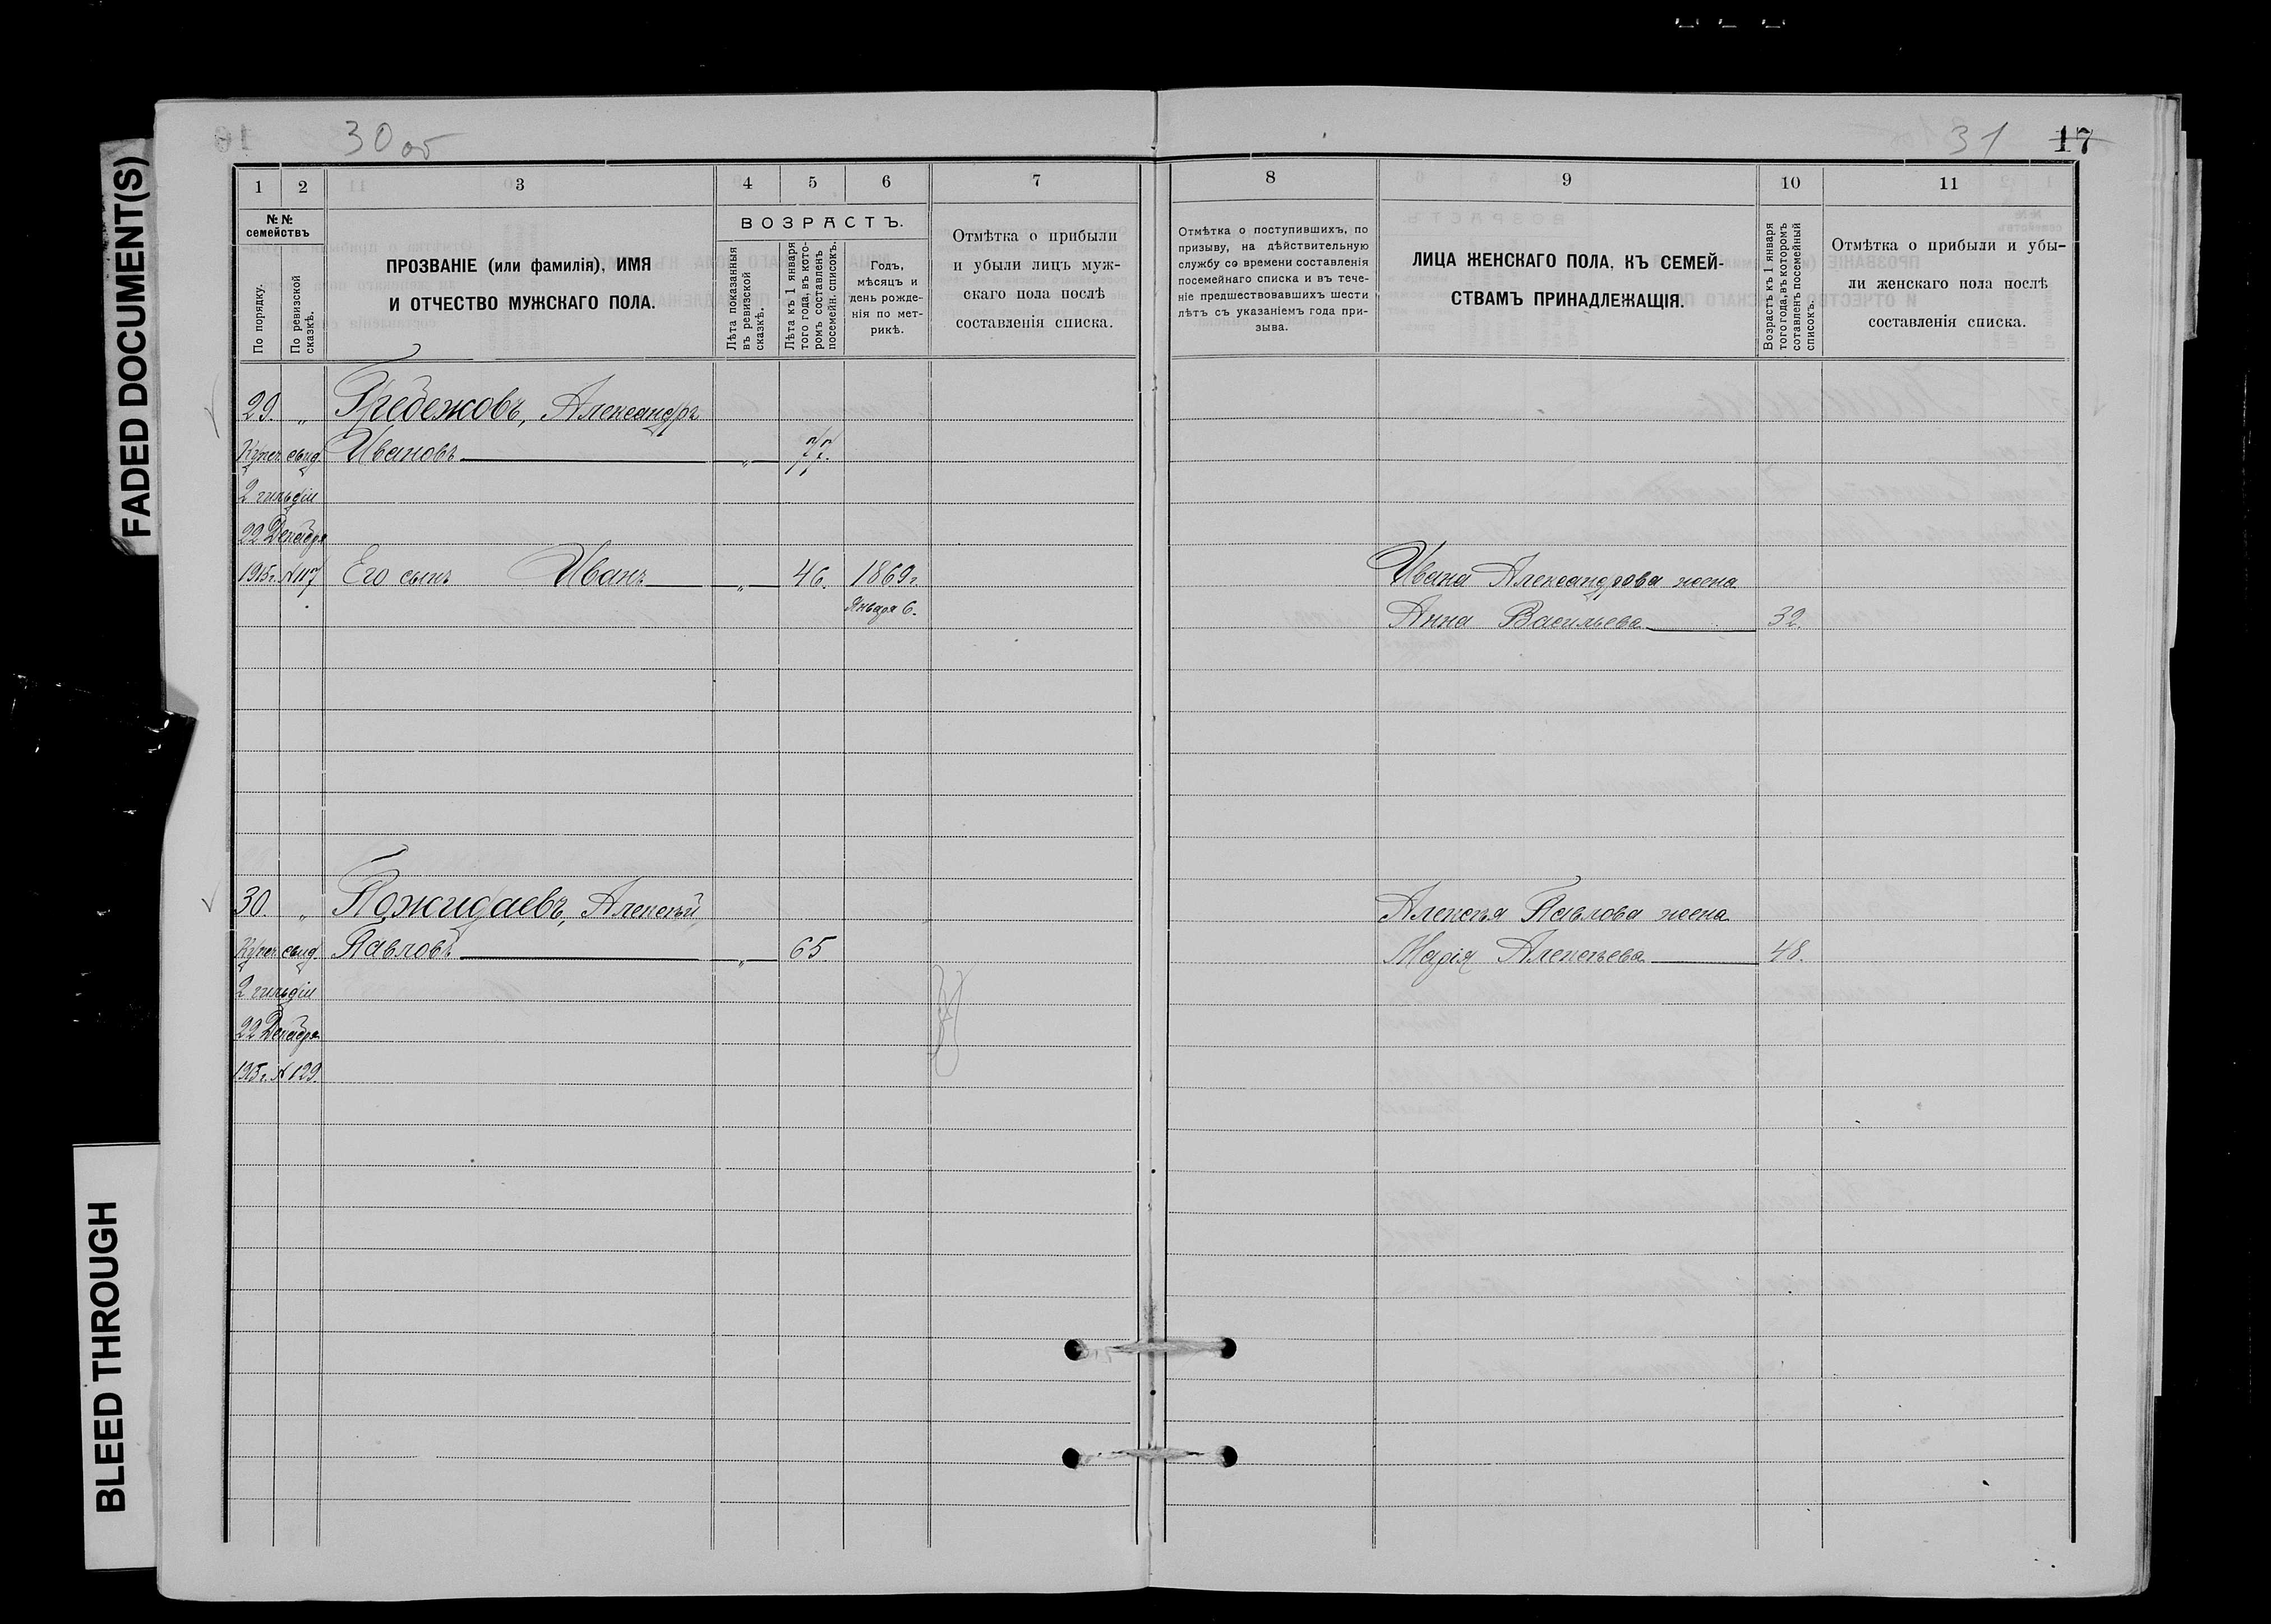 FADED DOCUMENT(S)
BLEED THROUGH
30 об
31 17
1 2 3 4 5 6 7
№№ семействъ
По порядку.
По ревизской сказкѣ.
ПРОЗВАНІЕ (или фамилія), ИМЯ
И ОТЧЕСТВО МУЖСКАГО ПОЛА.
ВОЗРАСТЪ.
Лѣта показанныя
въ ревизской
сказкѣ.
Лѣта къ 1 января
того года, въ кото-
ромъ составленъ
посемейн. списокъ.
Годъ,
мѣсяцъ и
день рожде-
нія по мет-
рикѣ.
Отмѣтка о прибыли
и убыли лицъ муж-
скаго пола послѣ
составленія списка.
29. „ Гребежовъ, Александръ
Купеч. свид. Ивановъ „ 77.
2 гильдіи
22 Декабря
1915 г. № 117 Его сынъ Иванъ „ 46. 1869 г.
Января 6.
30. „ Пожидаевъ, Алексѣй
Купеч. свид. Павловъ „ 65.
2 гильдіи
22 Декабря
1915 г. № 129.
8 9 10 11
Отмѣтка о поступившихъ, по
призыву, на дѣйствительную
службу со времени составленія
посемейнаго списка и въ тече-
ніе предшествовавшихъ шести
лѣтъ съ указаніемъ года при-
зыва.
ЛИЦА ЖЕНСКАГО ПОЛА, КЪ СЕМЕЙ-
СТВАМЪ ПРИНАДЛЕЖАЩІЯ.
Возрастъ къ 1 января
того года, въ которомъ
составленъ посемейный
списокъ.
Отмѣтка о прибыли и убы-
ли женскаго пола послѣ
составленія списка.
Ивана Александрова жена
Анна Васильева 32.
Алексѣя Павлова жена
Марія Алексѣева 48.